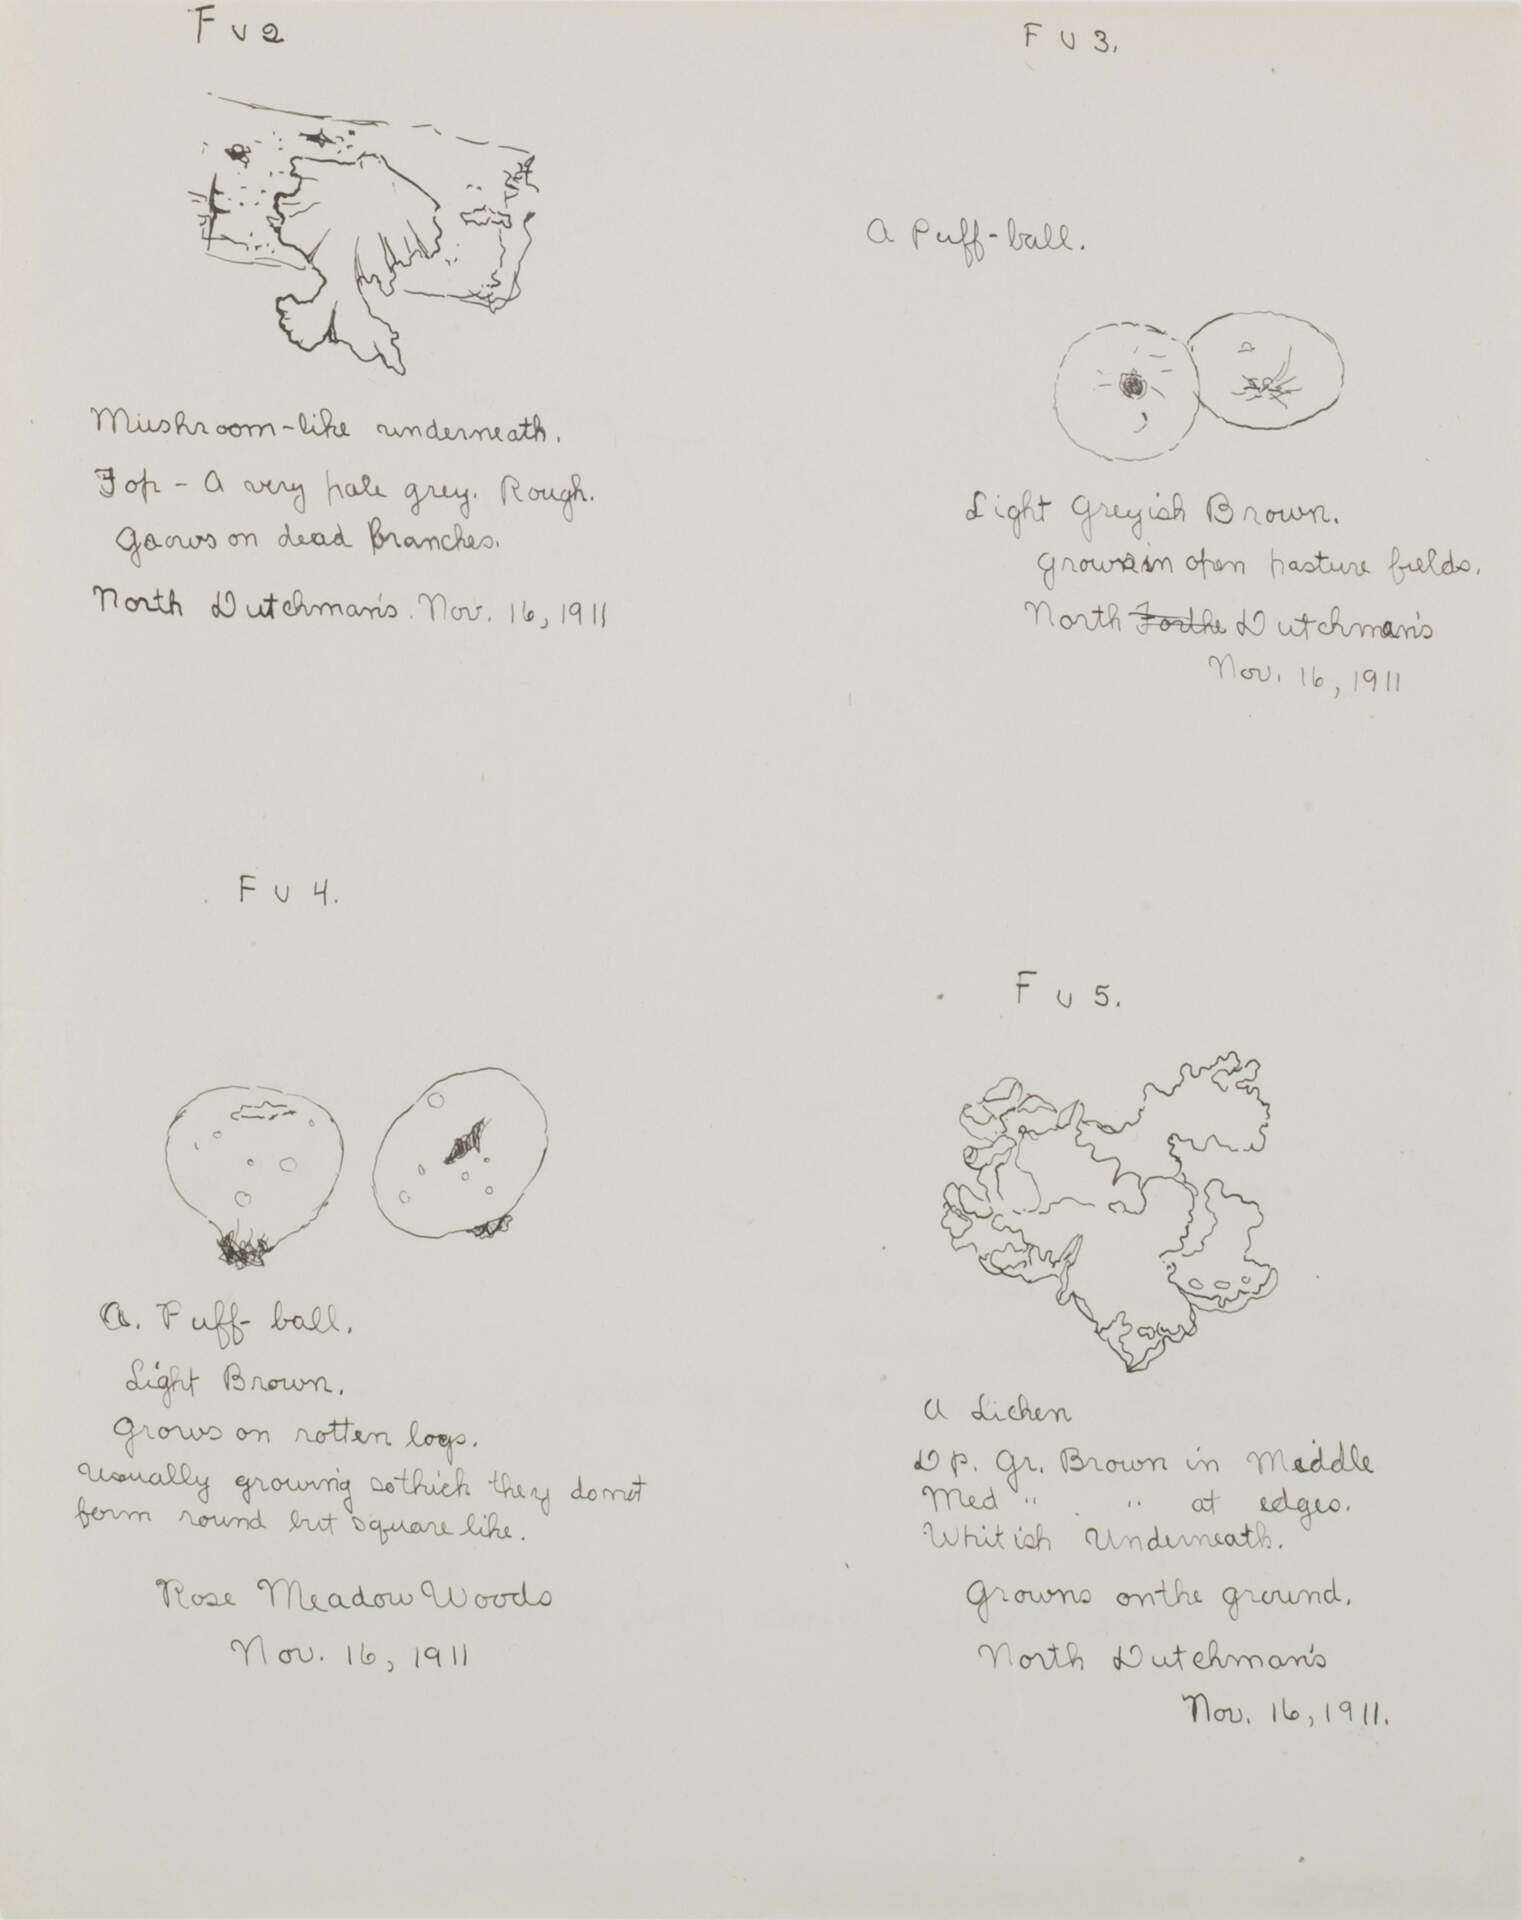 F U 2
Mushroom-like underneath.
Top - A very pale grey. Rough.
Grows on dead Branches.
North Dutchman's. Nov. 16, 1911
F U 3.
A Puff-ball.
Light Greyish Brown.
Grows in open pasture fields.
North Forthe Dutchman's
Nov. 16, 1911
F U 4.
A. Puff-ball.
Light Brown.
Grows on rotten logs.
Usually growing so thick they do not
form round but square like.
Rose Meadow Woods
Nov. 16, 1911
F U 5.
A Lichen
Dp. Gr. Brown in Middle
Med " " at edges.
Whitish Underneath.
Growns on the ground.
North Dutchman's
Nov. 16, 1911.